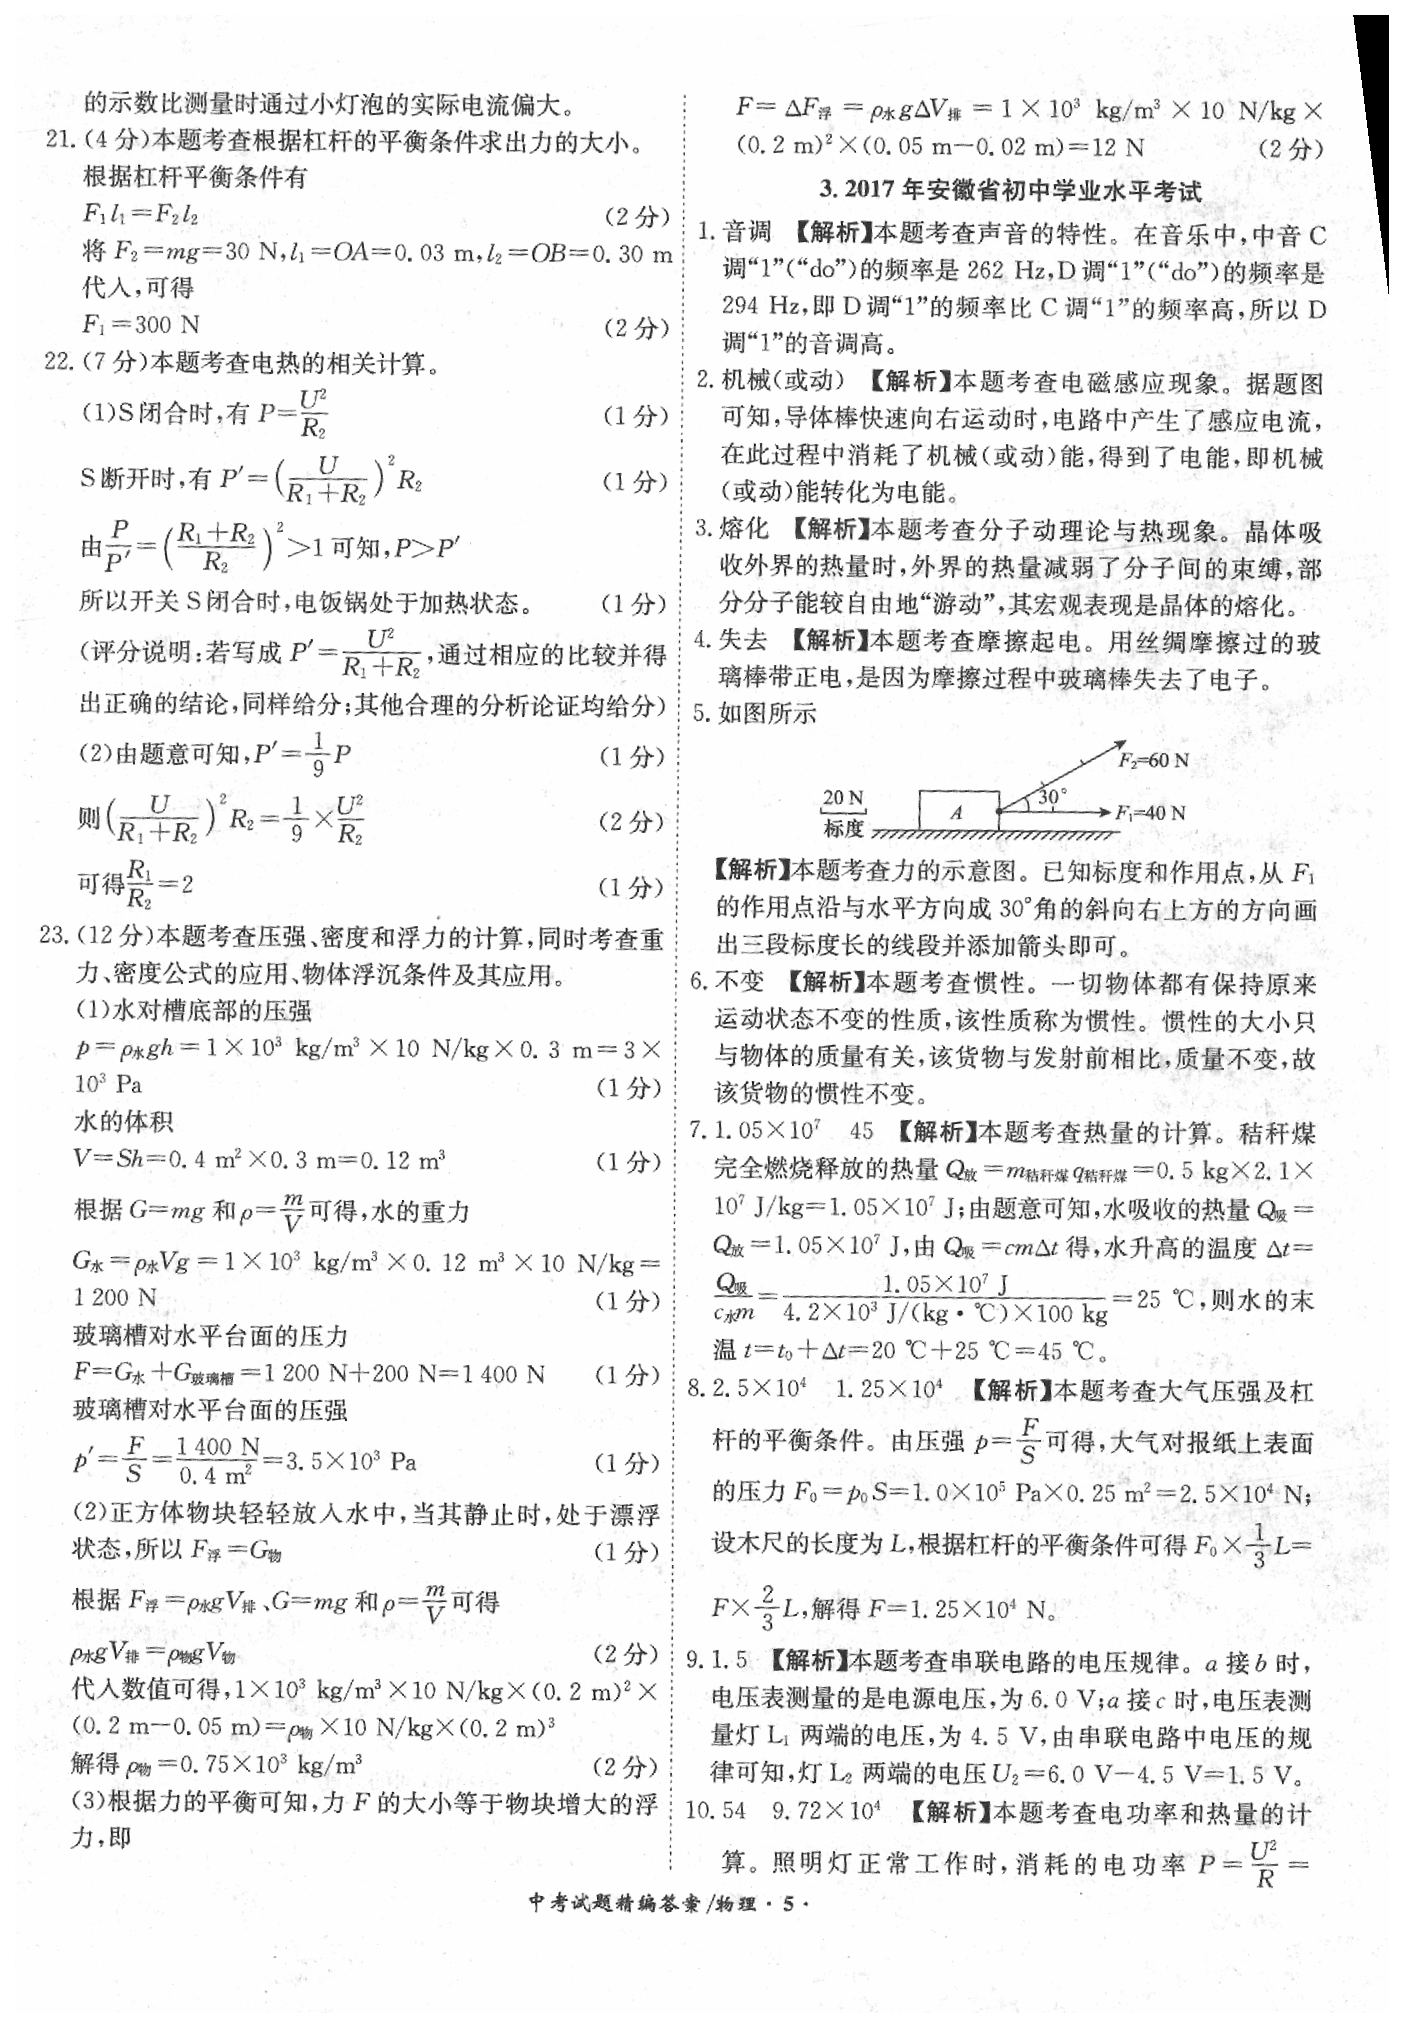 的示数比测量时通过小灯泡的实际电流偏大。
21.(4分)本题考查根据杠杆的平衡条件求出力的大小。
根据杠杆平衡条件有
F₁l₁=F₂l₂ (2分)
将 F₂=mg=30 N,l₁=OA=0.03 m,l₂=OB=0.30 m
代入,可得
F₁=300 N (2分)
22.(7分)本题考查电热的相关计算。
(1)S闭合时,有 P=U²/R₂ (1分)
S断开时,有 P′=(U/(R₁+R₂))²R₂ (1分)
由P/P′=((R₁+R₂)/R₂)²>1可知,P>P′
所以开关S闭合时,电饭锅处于加热状态。 (1分)
(评分说明:若写成 P′=U²/(R₁+R₂),通过相应的比较并得
出正确的结论,同样给分;其他合理的分析论证均给分)
(2)由题意可知,P′=1/9P (1分)
则(U/(R₁+R₂))²R₂=1/9×U²/R₂ (2分)
可得R₁/R₂=2 (1分)
23.(12分)本题考查压强、密度和浮力的计算,同时考查重
力、密度公式的应用、物体浮沉条件及其应用。
(1)水对槽底部的压强
p=ρ水gh=1×10³ kg/m³×10 N/kg×0.3 m=3×
10³ Pa (1分)
水的体积
V=Sh=0.4 m²×0.3 m=0.12 m³ (1分)
根据 G=mg 和 ρ=m/V可得,水的重力
G水=ρ水Vg=1×10³ kg/m³×0.12 m³×10 N/kg=
1 200 N (1分)
玻璃槽对水平台面的压力
F=G水+G玻璃槽=1 200 N+200 N=1 400 N (1分)
玻璃槽对水平台面的压强
p′=F/S=1 400 N/0.4 m²=3.5×10³ Pa (1分)
(2)正方体物块轻轻放入水中,当其静止时,处于漂浮
状态,所以 F浮=G物 (1分)
根据 F浮=ρ水gV排、G=mg 和 ρ=m/V可得
ρ水gV排=ρ物gV物 (2分)
代入数值可得,1×10³ kg/m³×10 N/kg×(0.2 m)²×
(0.2 m−0.05 m)=ρ物×10 N/kg×(0.2 m)³
解得 ρ物=0.75×10³ kg/m³ (2分)
(3)根据力的平衡可知,力 F 的大小等于物块增大的浮
力,即
F=ΔF浮=ρ水gΔV排=1×10³ kg/m³×10 N/kg×
(0.2 m)²×(0.05 m−0.02 m)=12 N (2分)
3. 2017年安徽省初中学业水平考试
1. 音调 【解析】本题考查声音的特性。在音乐中,中音C
调“1”(“do”)的频率是 262 Hz,D调“1”(“do”)的频率是
294 Hz,即D调“1”的频率比C调“1”的频率高,所以D
调“1”的音调高。
2. 机械(或动) 【解析】本题考查电磁感应现象。据题图
可知,导体棒快速向右运动时,电路中产生了感应电流,
在此过程中消耗了机械(或动)能,得到了电能,即机械
(或动)能转化为电能。
3. 熔化 【解析】本题考查分子动理论与热现象。晶体吸
收外界的热量时,外界的热量减弱了分子间的束缚,部
分分子能较自由地“游动”,其宏观表现是晶体的熔化。
4. 失去 【解析】本题考查摩擦起电。用丝绸摩擦过的玻
璃棒带正电,是因为摩擦过程中玻璃棒失去了电子。
5. 如图所示
F₂=60 N
20 N
标度
A
30°
F₁=40 N
【解析】本题考查力的示意图。已知标度和作用点,从 F₁
的作用点沿与水平方向成30°角的斜向右上方的方向画
出三段标度长的线段并添加箭头即可。
6. 不变 【解析】本题考查惯性。一切物体都有保持原来
运动状态不变的性质,该性质称为惯性。惯性的大小只
与物体的质量有关,该货物与发射前相比,质量不变,故
该货物的惯性不变。
7. 1.05×10⁷ 45 【解析】本题考查热量的计算。秸秆煤
完全燃烧释放的热量 Q放=m秸秆煤q秸秆煤=0.5 kg×2.1×
10⁷ J/kg=1.05×10⁷ J;由题意可知,水吸收的热量 Q吸=
Q放=1.05×10⁷ J,由 Q吸=cmΔt 得,水升高的温度 Δt=
Q吸/c水m=1.05×10⁷ J/(4.2×10³ J/(kg·℃)×100 kg)=25 ℃,则水的末
温 t=t₀+Δt=20 ℃+25 ℃=45 ℃。
8. 2.5×10⁴ 1.25×10⁴ 【解析】本题考查大气压强及杠
杆的平衡条件。由压强 p=F/S可得,大气对报纸上表面
的压力 F₀=p₀S=1.0×10⁵ Pa×0.25 m²=2.5×10⁴ N;
设木尺的长度为L,根据杠杆的平衡条件可得 F₀×1/3L=
F×2/3L,解得 F=1.25×10⁴ N。
9. 1.5 【解析】本题考查串联电路的电压规律。a接b时,
电压表测量的是电源电压,为6.0 V;a接c时,电压表测
量灯 L₁ 两端的电压,为 4.5 V,由串联电路中电压的规
律可知,灯 L₂ 两端的电压U₂=6.0 V−4.5 V=1.5 V。
10. 54 9.72×10⁴ 【解析】本题考查电功率和热量的计
算。照明灯正常工作时,消耗的电功率 P=U²/R=
中考试题精编答案/物理·5·